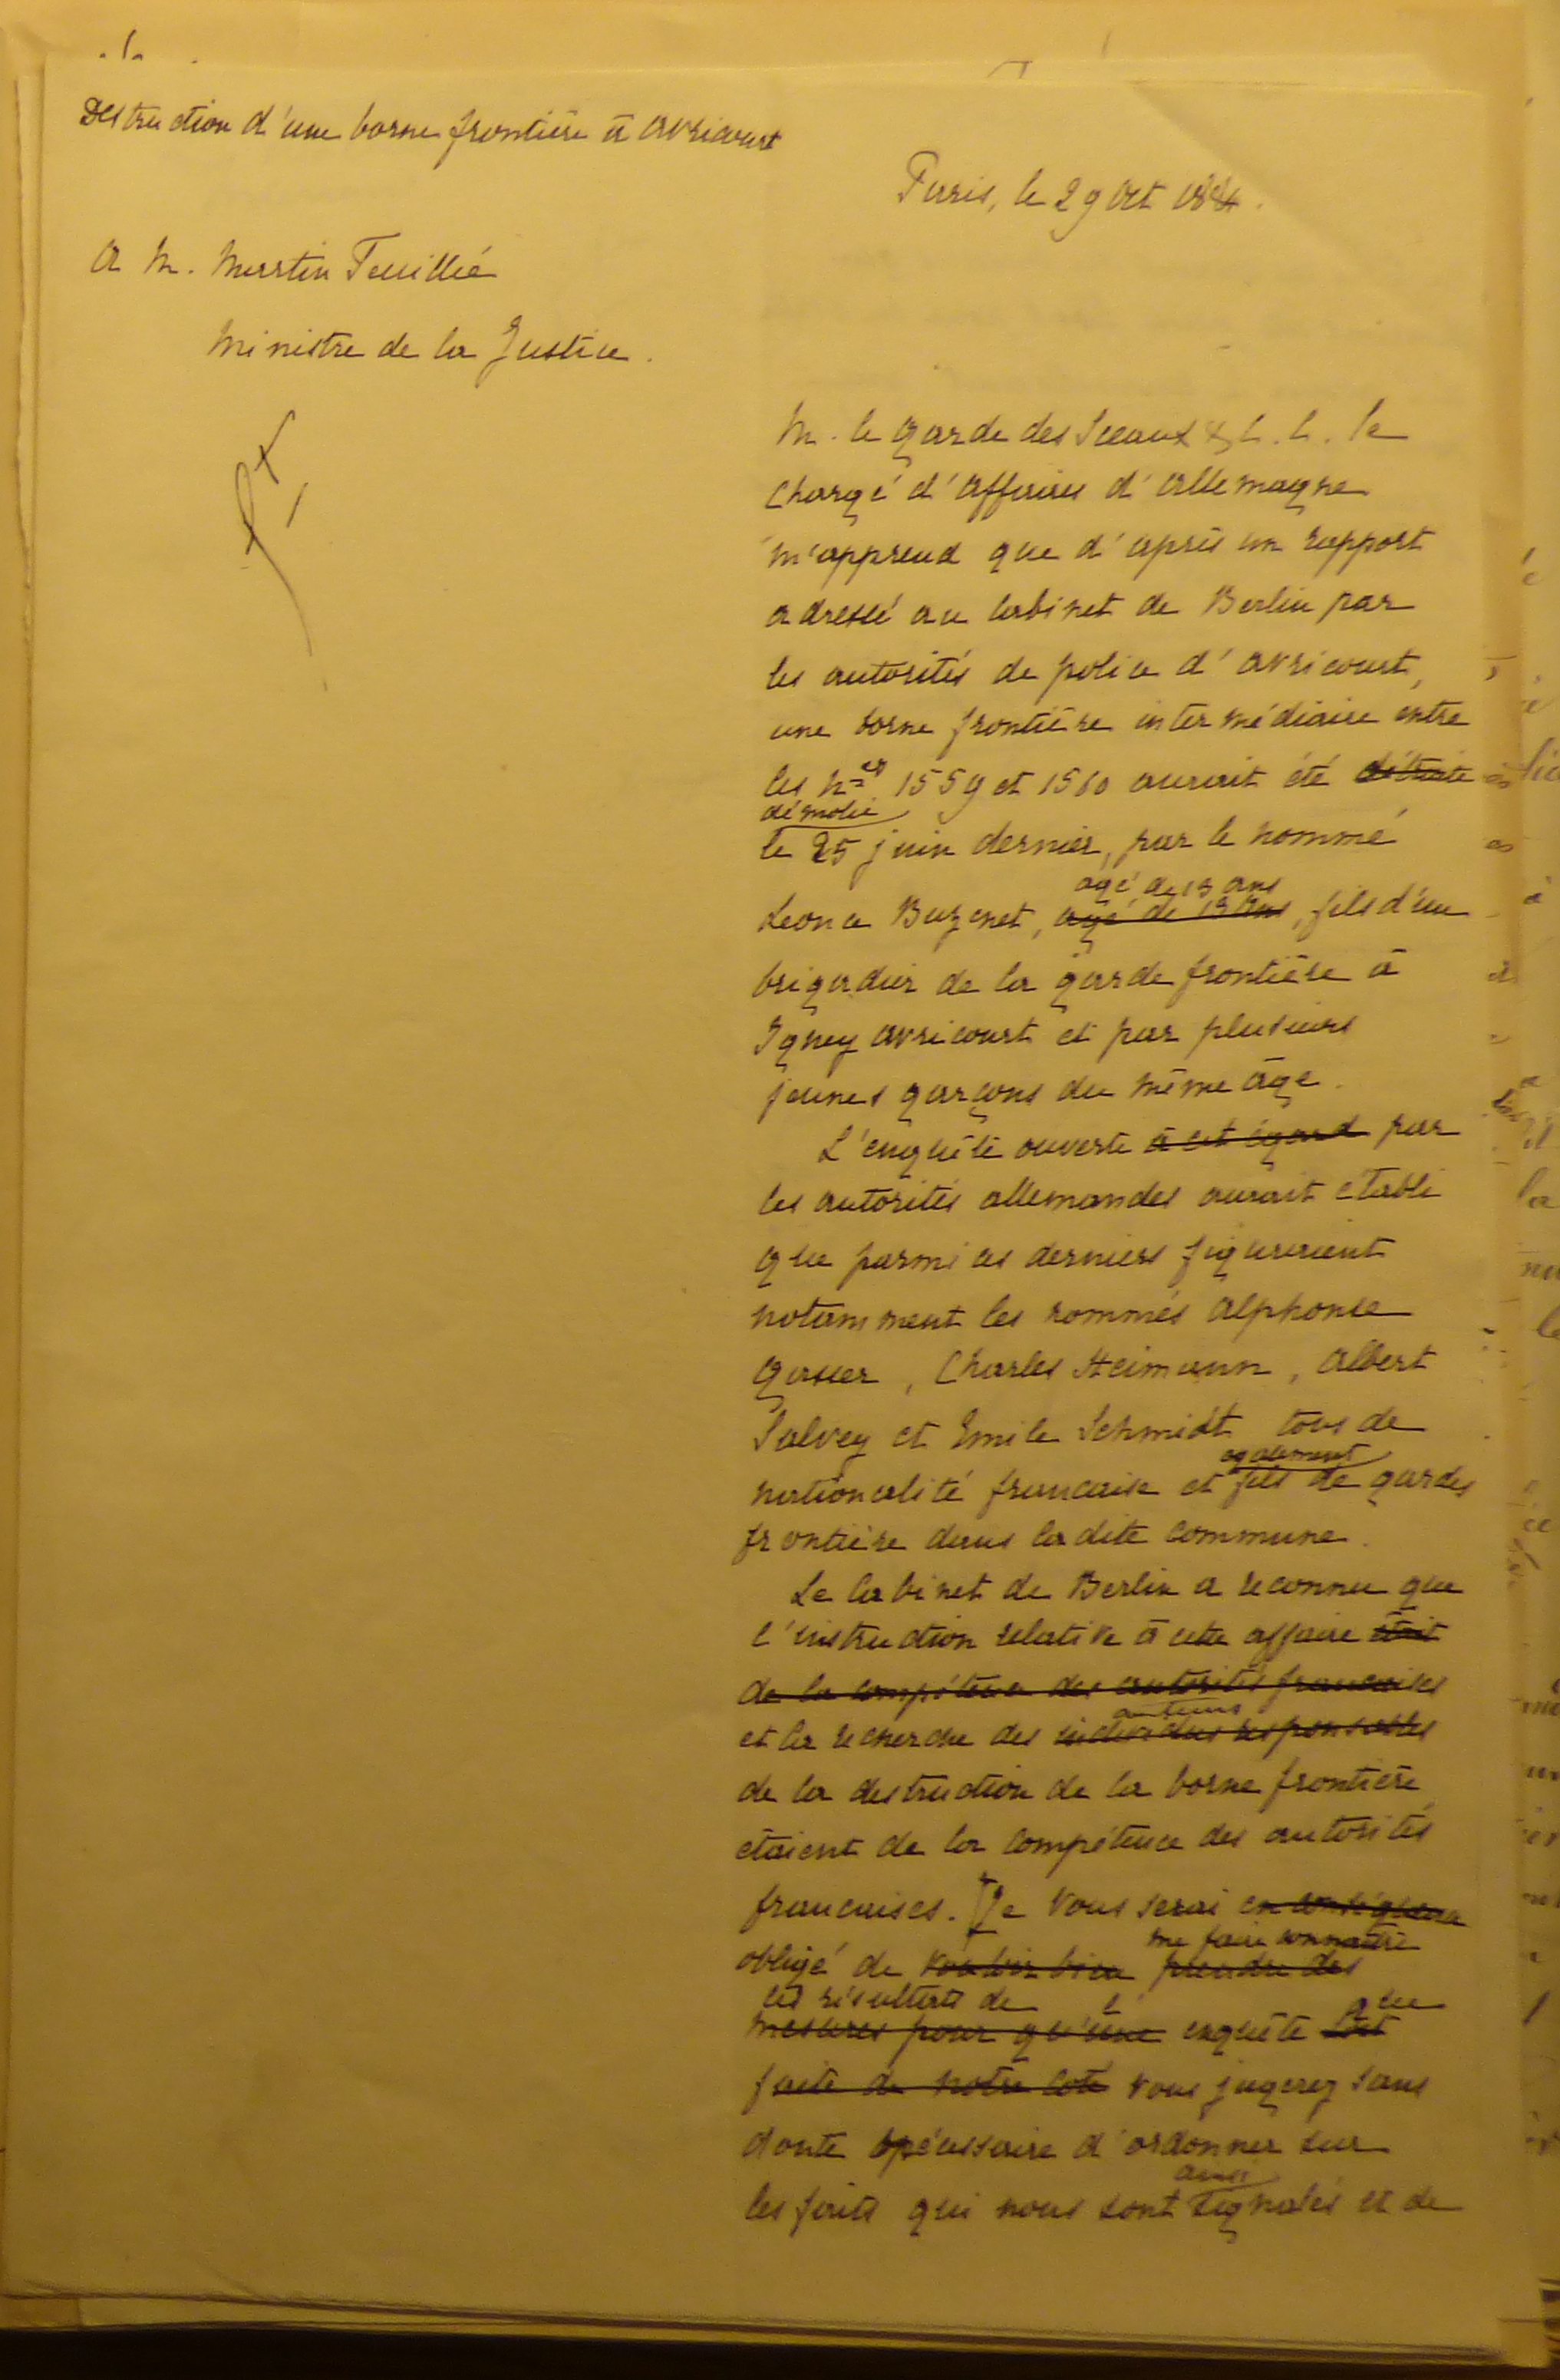 Destruction d'une borne frontière à Avricourt
Paris, le 29 Oct 1884.
A M. Martin Feuillée
Ministre de la Justice.
M. le Garde des Sceaux & L. L. le
Chargé d'Affaires d'Allemagne
m'apprend que d'après un rapport
adressé au Cabinet de Berlin par
les autorités de police d'Avricourt,
une borne frontière intermédiaire entre
les Nos 1559 et 1560 aurait été détruite
démolie
le 25 juin dernier, par le nommé
agé de 13 ans
Leonce Buzenet, agé de 13 ans, fils d'un
brigadier de la garde frontière à
Igney Avricourt et par plusieurs
jeunes garçons du même âge.
L'enquête ouverte à cet égard par
les autorités allemandes aurait etabli
que parmi ces derniers figuraient
notamment les nommés Alphonse
Gasser, Charles Heimann, Albert
Salvey et Emile Schmidt tous de
egalement
nationalité francaise et fils de gardes
frontière dans ladite commune.
Le Cabinet de Berlin a reconnu que
l'instruction relative à cette affaire était
de la compétence des autorités francaises
auteurs
et la recherche des individus responsables
de la destruction de la borne frontière
etaient de la compétence des autorités
francaises. [Je vous serai en conséquence
me faire connaitre
obligé de vouloir bien prendre des
les résultats de l' que
mesures pour qu'une enquête soit
faite de notre coté vous jugerez sans
doute nécessaire d'ordonner sur
ainsi
les faits qui nous sont signalés et de